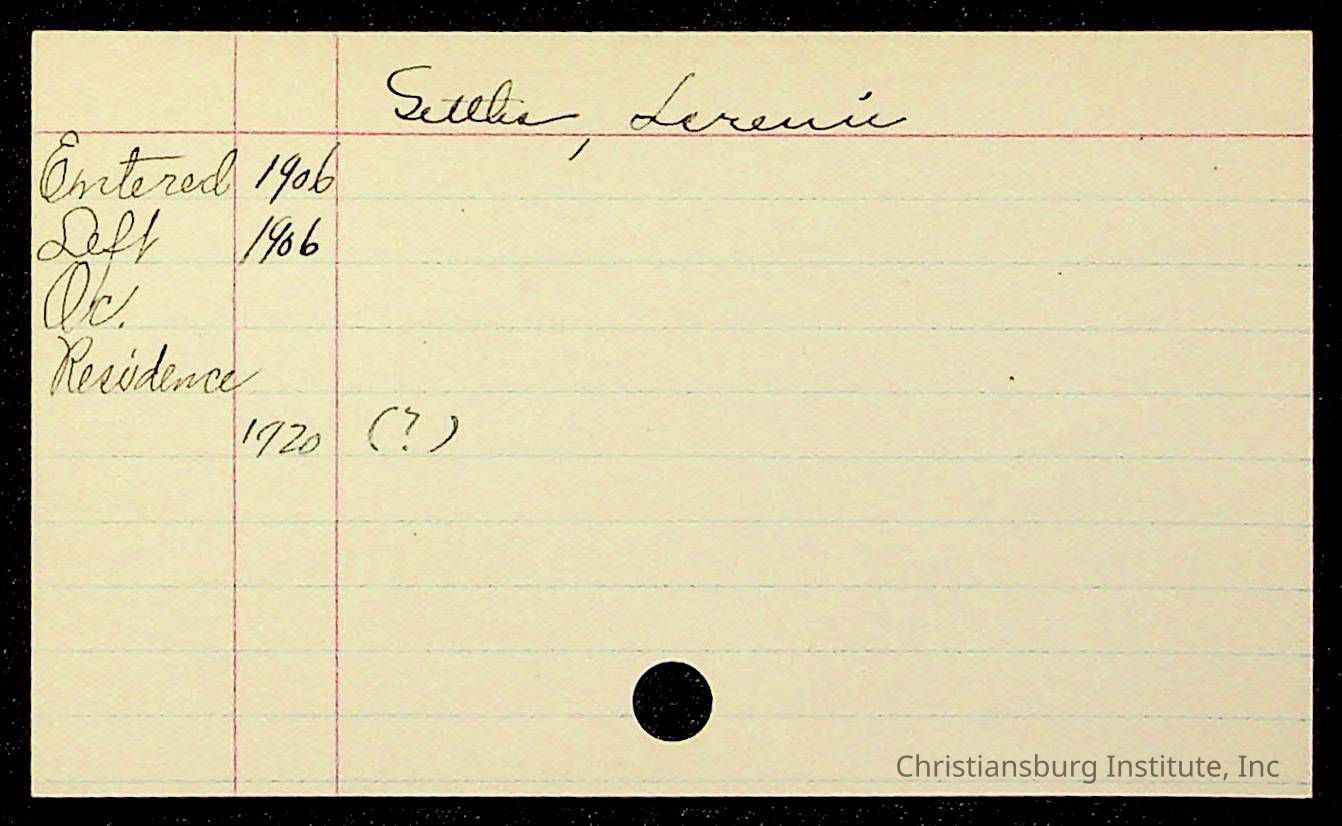 Settles, Lorenie
Entered 1906
Left 1906
Oc.
Residence
1920 (?)
Christiansburg Institute, Inc